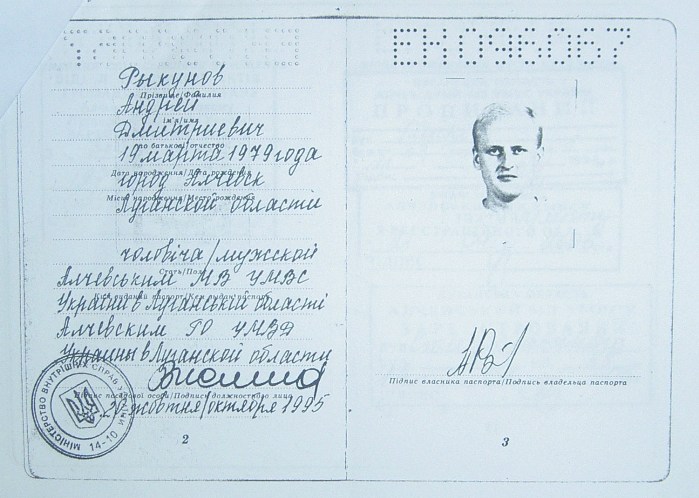 Рыкунов
Прізвище/Фамилия
Андрей
ім'я/имя
Дмитриевич
по батькові/отчество
19 марта 1979 года
Дата народження/Дата рождения
город Алчевск
Місце народження/Место рождения
Луганской области
чоловіча/мужской
Стать/Пол
Алчевським МВ УМВС
України в Луганській області
Ким виданий паспорт/Кем выдан паспорт
Алчевским ГО УМВД
Украины в Луганской области
Підпис посадової особи/Подпись должностного лица
20 жовтня/октября 1995
МІНІСТЕРСТВО ВНУТРІШНІХ СПРАВ УКРАЇНИ
14-10
2
ЕН096067
Підпис власника паспорта/Подпись владельца паспорта
3